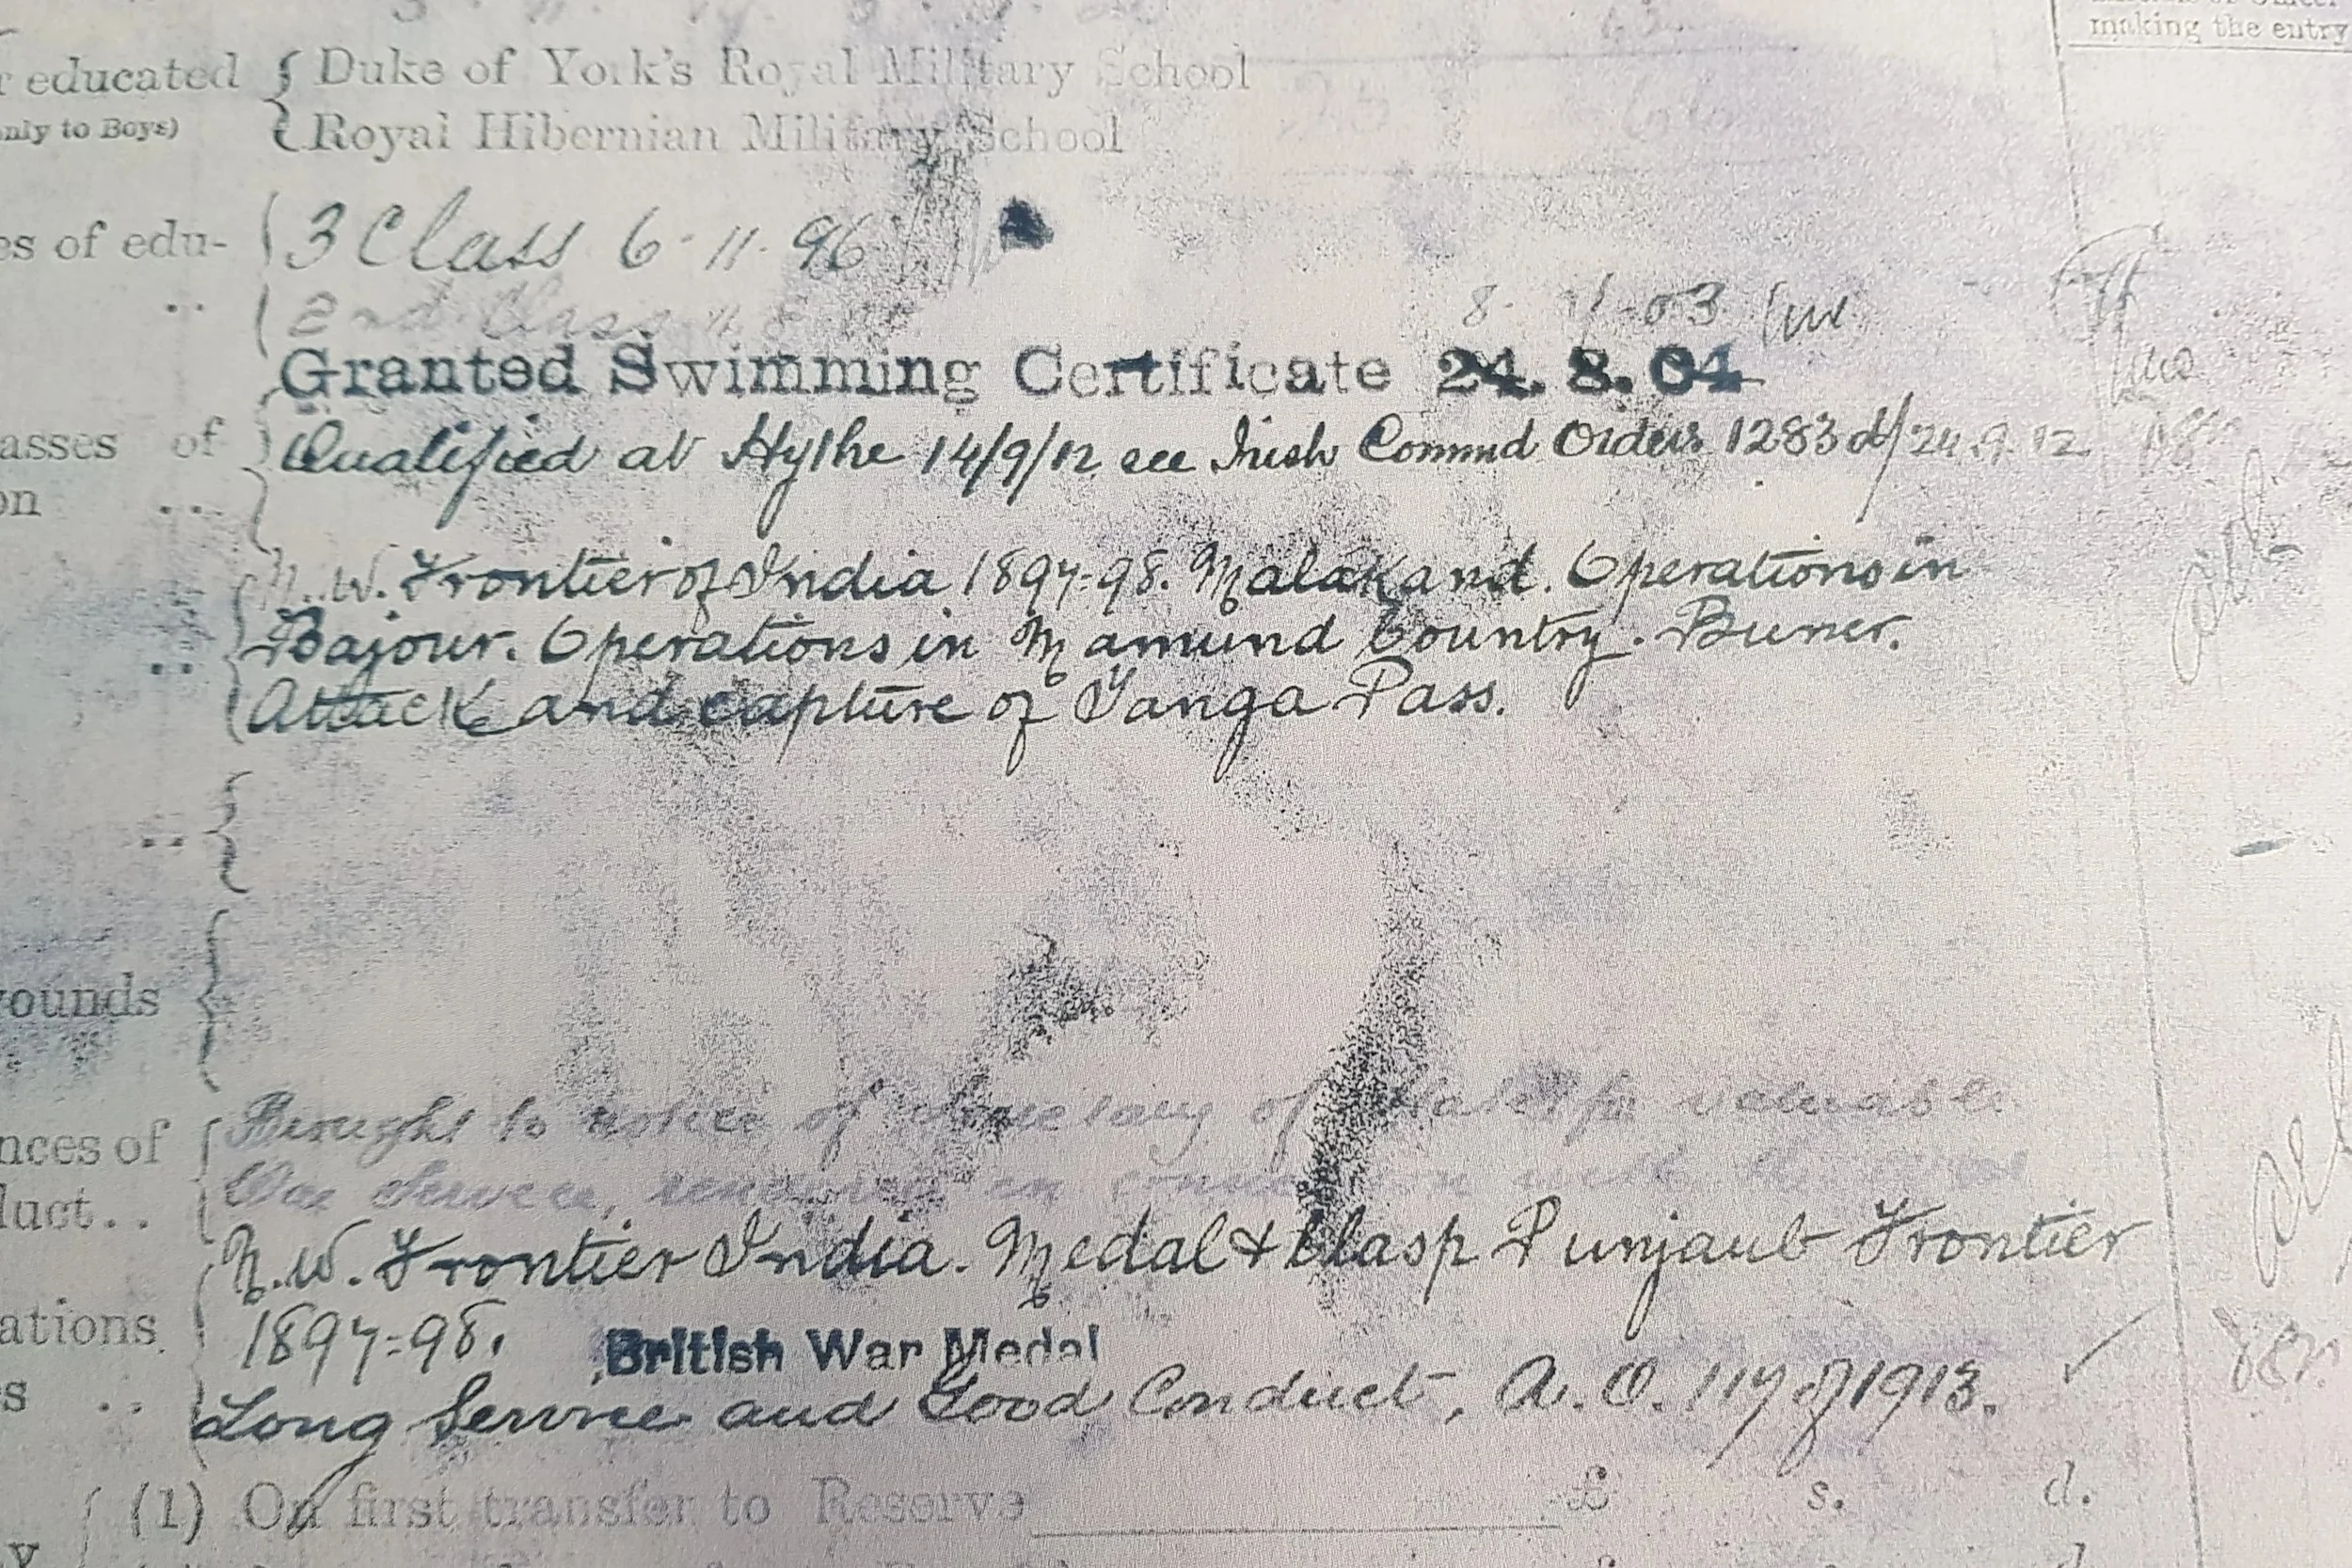 making the entry
educated { Duke of York's Royal Military School
only to Boys) { Royal Hibernian Military School
es of edu- 3 Class 6-11-96
.. 2nd Class
8- -03
Granted Swimming Certificate 24.8.04
asses of Qualified at Hythe 14/9/12 see Irish Commd Orders 1283 d/24.9.12
on ..
N.W. Frontier of India 1897-98. Malakand. Operations in
.. Bajour. Operations in Mamund Country. Buner.
Attack and capture of Tanga Pass.
..
wounds
nces of Brought to notice of Secretary of State for valuable
duct.. War Service, rendered in connection with the war
N.W. Frontier India. Medal & Clasp Punjaub Frontier
ations 1897-98. British War Medal
s .. Long Service and Good Conduct, A.O. 117 of 1913.
(1) On first transfer to Reserve £ s. d.